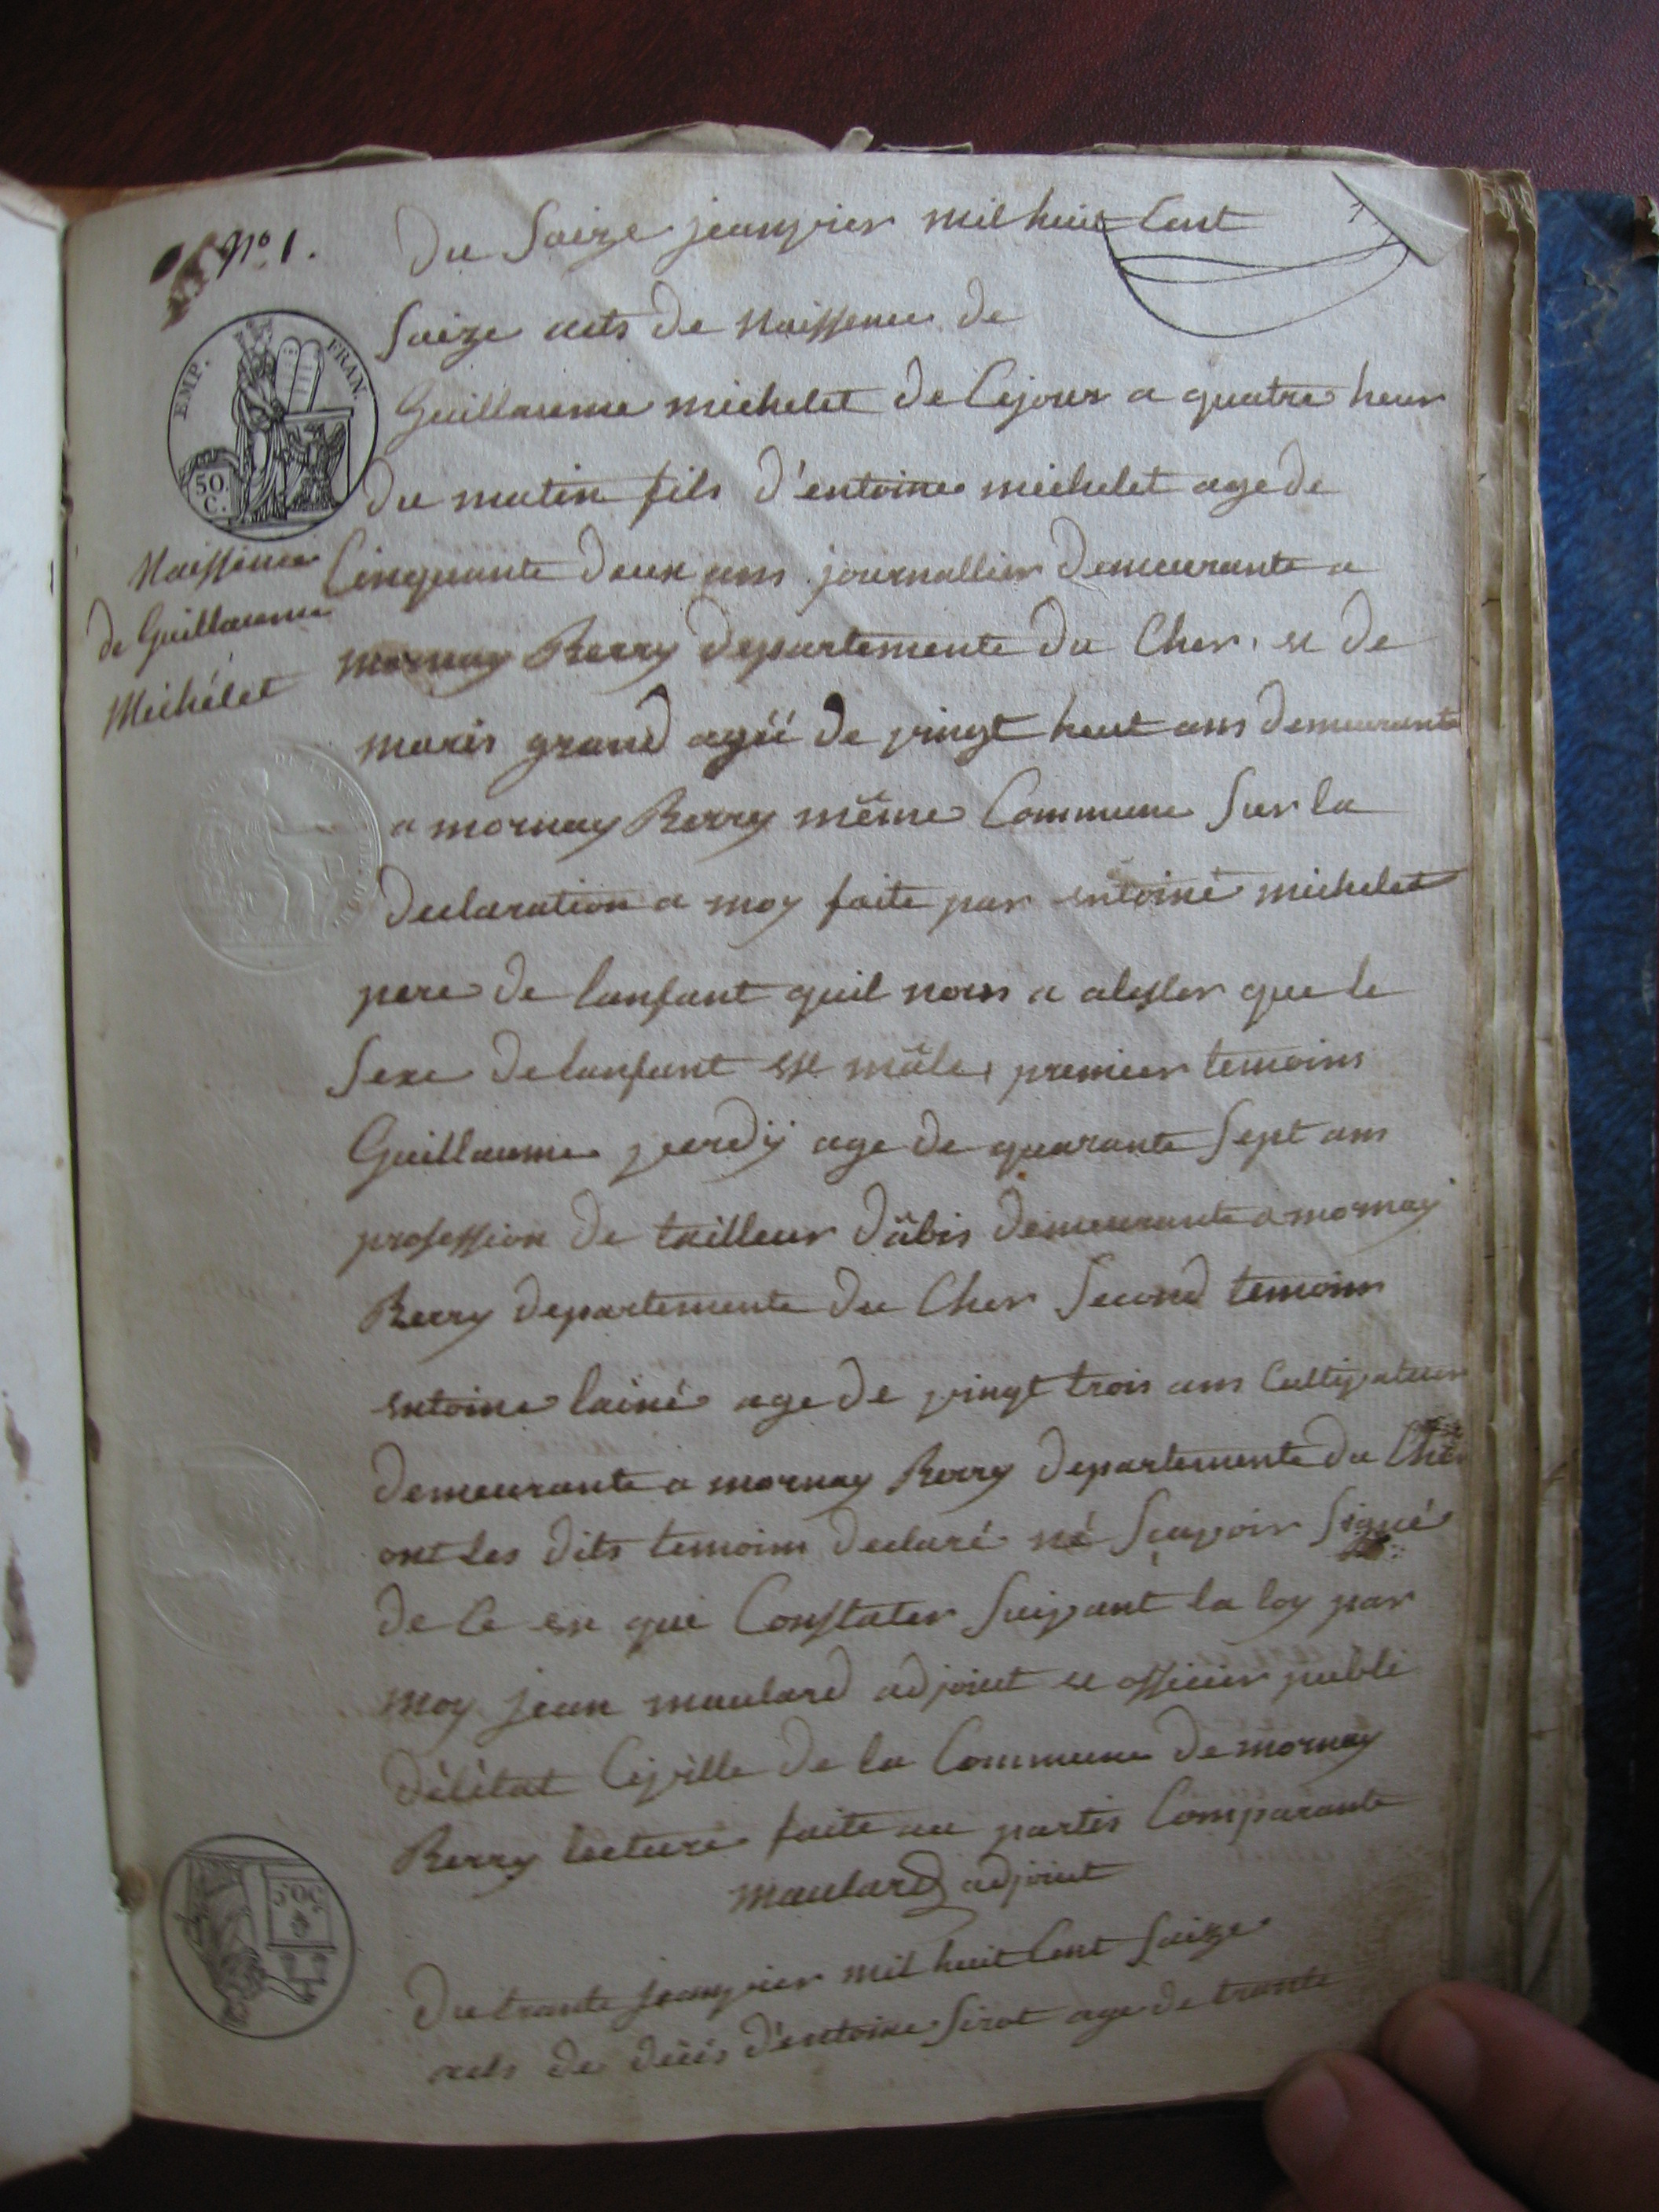 N° 1.
Du Saize jeanvier mil huit Cent
Saize acts de Naissence de
EMP. FRAN.
50. C.
Guillaume michelet de Cejour a quatre heur
du matin fils d'entoine michelet age de
Naissence
de Guillaume
Michélet
Cinquante deux ans journallier Demeurante a
mornay Berry departemente du Cher, et de
maris grand agéé de vingt huit ans demeurante
a mornay Berry même Commune Sur la
declaration a moy faite par entoine michelet
pere de lanfant quil nous a alester que le
Sexe de lanfant est mâle, premier temoins
Guillaume jeerdÿ age de quarante Sept ans
profession de tailleur d'âbis demeurante a mornay
Berry departemente du Cher Second temoins
entoine lainé age de vingt trois ans Cultivateur
demeurante a mornay Berry departemente du Cher
ont les dits temoins declaré né Sçavoir Signé
de Ce en qui Constater Suivant la loy par
moy jean maulard adjoint et officier publi
délétat Civille de la Commune de mornay
Berry lecture faite au partis Comparante
maulard adjoint
50C
Du trante jeanvier mil huit Cent Saize
acts de décis d'entoine Sirot age de trante